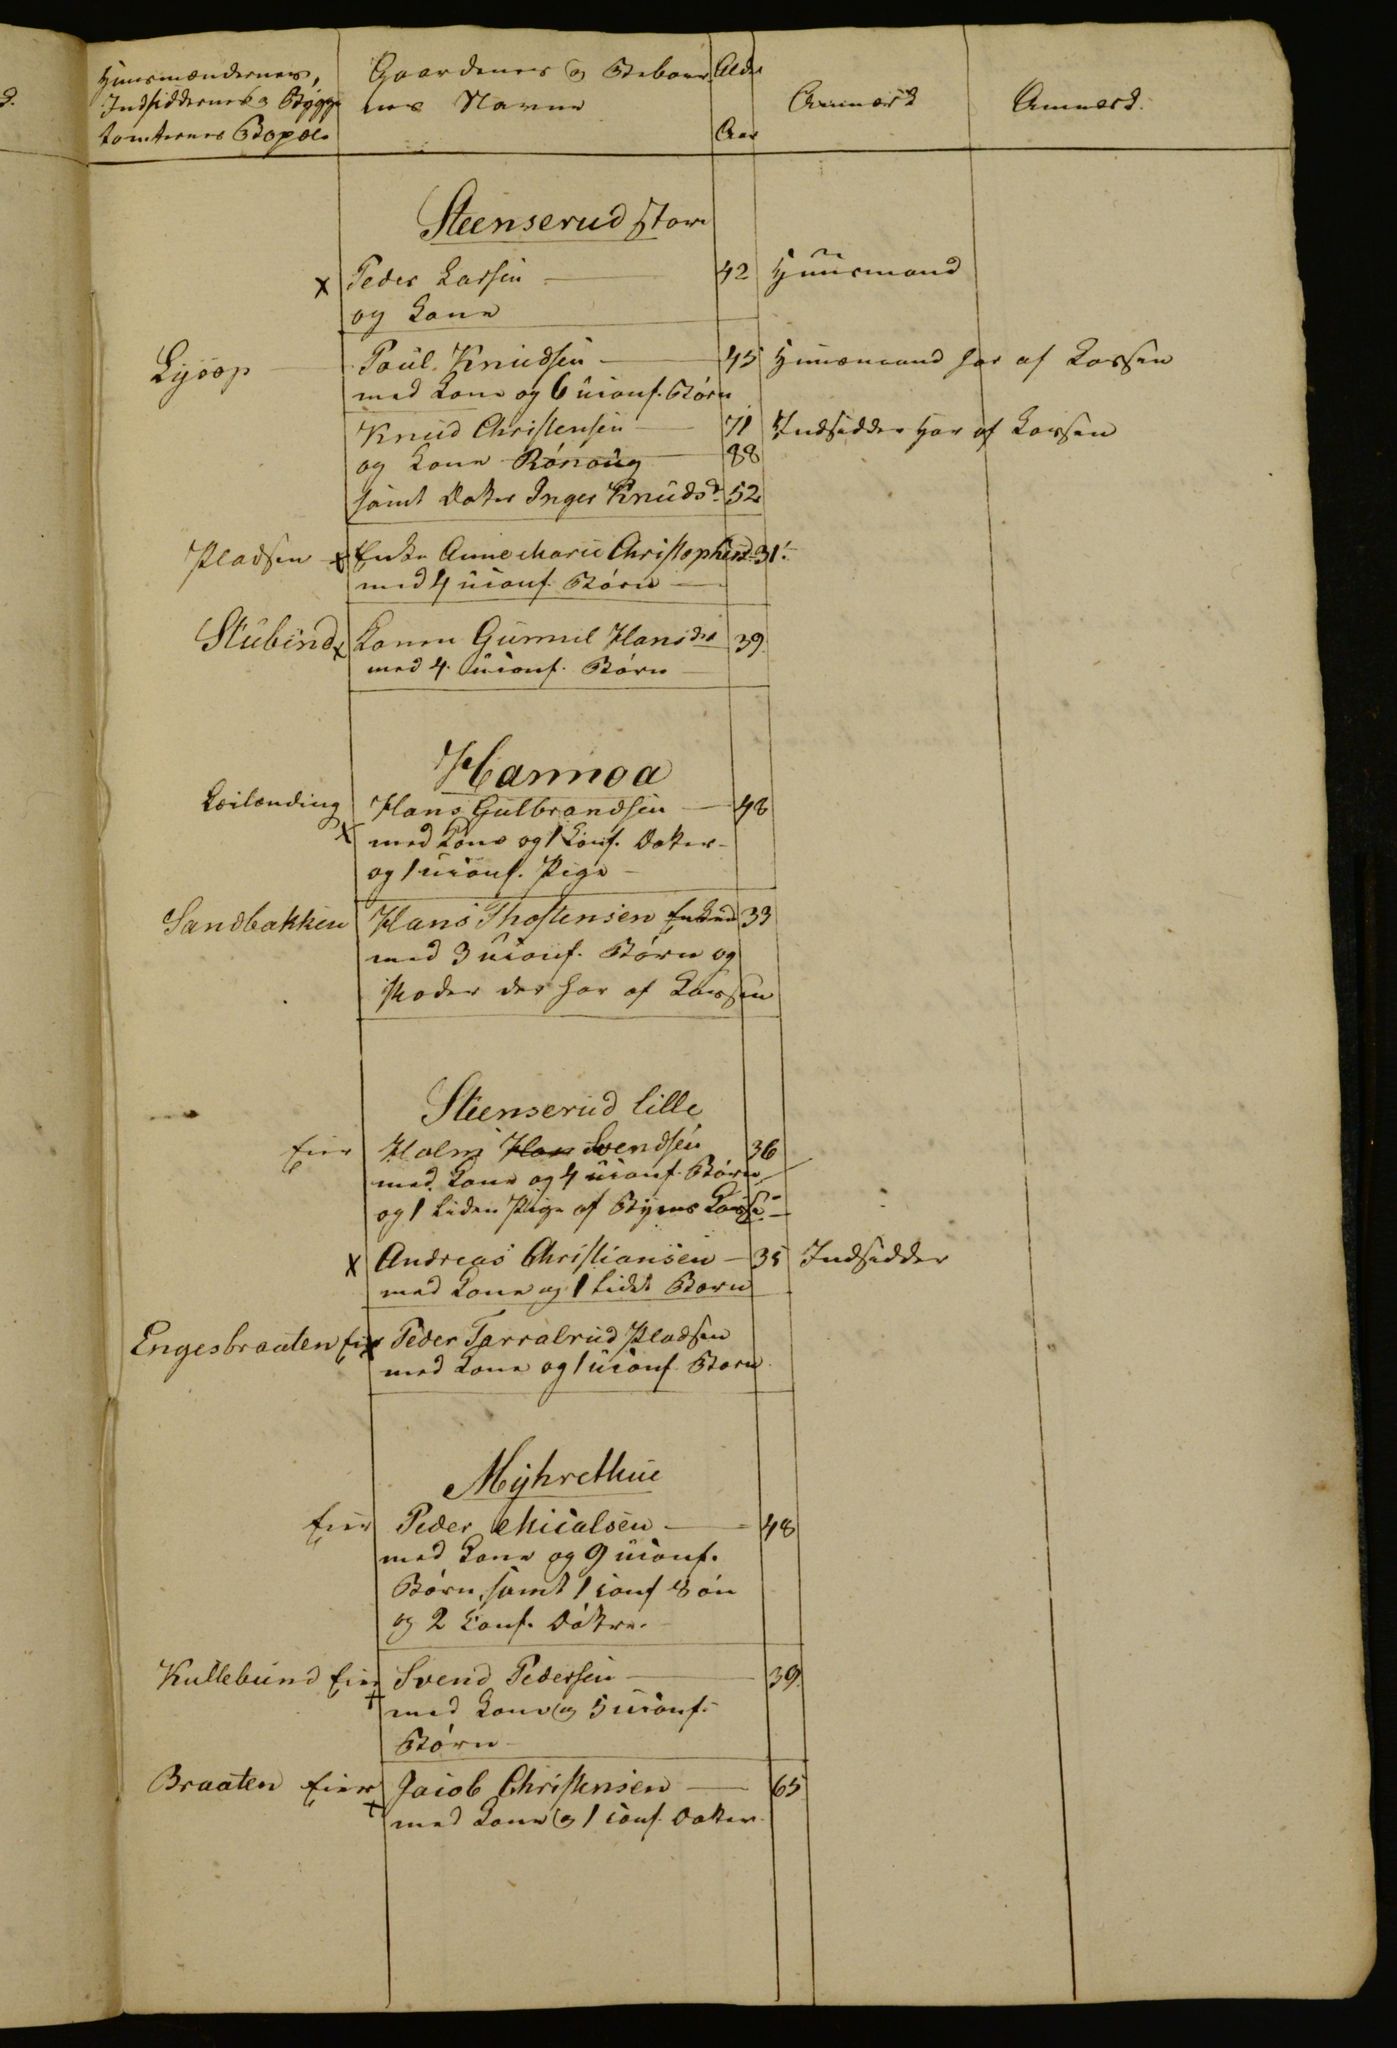 Huusmændernes, Gaardenes og Beboer Alder
Indsiddernes og Bygge nes Navne Anmærk Anmærk.
tomternes Bopæle Aar
Steenserud store
x Peder Larsen 42 Huusmand
og Kone
Lysop Poul Knudsen 45 Huusmand har af Kassen
med Kone og 6 uconf. Børn
Knud Christensen 71 Indsidder har af Kassen
og Kone Rónoug 88
samt Dater Inger Knudsd. 52
Pladsen x Enke Anne Marie Christophersd. 31
med 4 uconf. Børn
Stubind x Konen Gunnil Hansdr 39
med 4. uconf. Børn
Hannoa
Leilænding x Hans Gulbrandsen 48
med Kone og 1 Conf. Dater
og 1 uconf. Pige
Sandbakken Hans Thostensen Enkem 33
med 3 uconf. Børn og
Moder der har af Kassen
Steenserud lille
Eier Halvor Svendsen 36
med Kone og 4 uconf. Børn
og 1 liden Pige af Byens Kasse
x Andreas Christiansen 35 Indsidder
med Kone og 1 lidet Barn
Engesbraaten Eier x Peder Tarralrud Pladsen
med Kone og 1 uconf. Barn
Myhrethue
Eier Peder Micalsen 48
med Kone og 9 uconf.
Børn, samt 1 conf Søn
og 2 Conf. Døtre.
Kullebund Eier + Svend Pedersen 39.
med Kone og 5 uconf.
Børn
Braaten Eier + Jacob Christensen 65
med Kone og 1 conf. Dater.